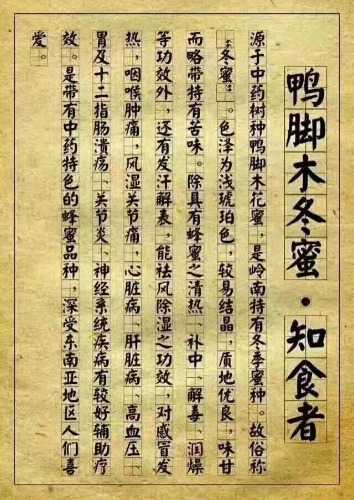 鸭脚木冬蜜·知食者
源于中药树种鸭脚木花蜜,是岭南特有冬季蜜种。故俗称
“冬蜜”。色泽为浅琥珀色,较易结晶,质地优良,味甘
而略带特有苦味。除具有蜂蜜之清热、补中、解毒、润燥
等功效外,还有发汗解表,能祛风除湿之功效,对感冒发
热,咽喉肿痛,风湿关节痛,心脏病、肝脏病、高血压、
胃及十二指肠溃疡、关节炎、神经系统疾病有较好辅助疗
效。是带有中药特色的蜂蜜品种,深受东南亚地区人们喜
爱。